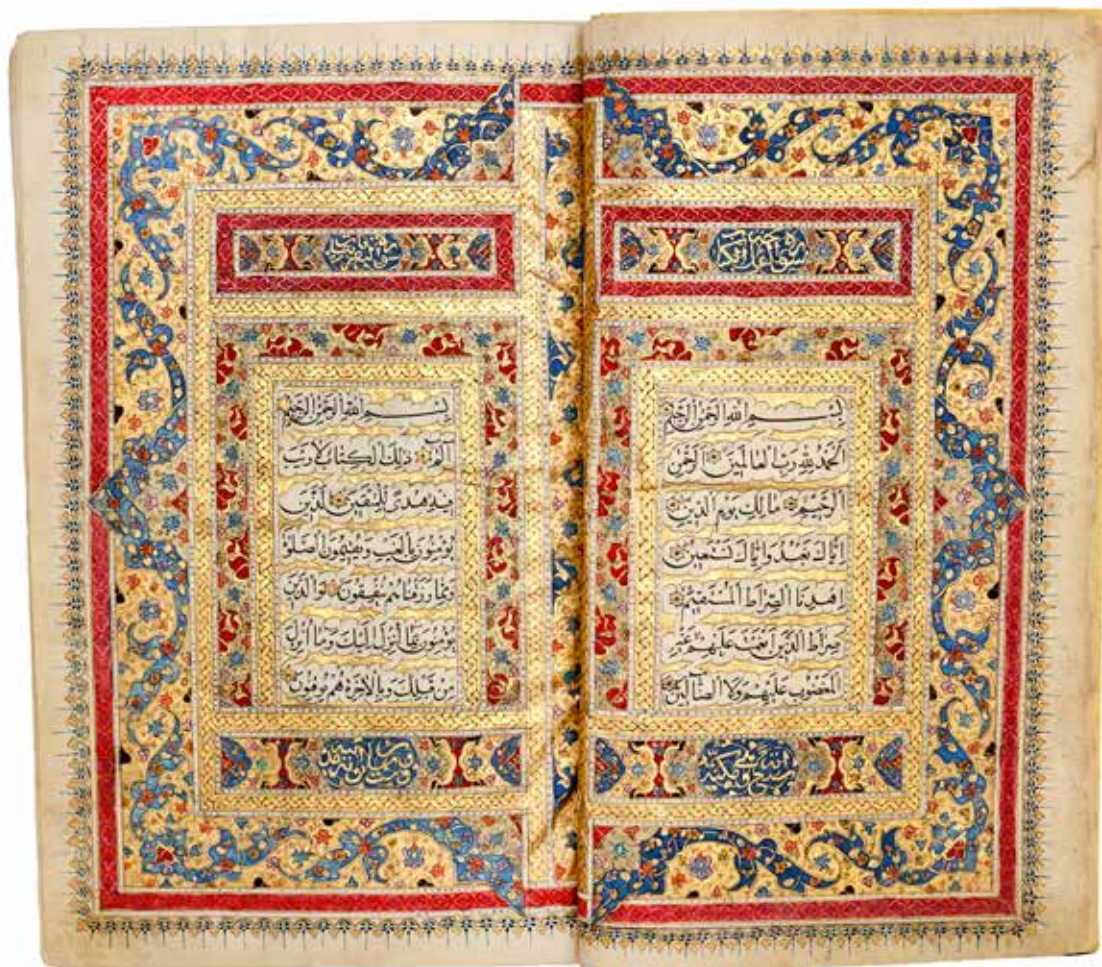 سورة
بِسْمِ اللهِ الرَّحْمٰنِ الرَّحِيمِ
اَلْحَمْدُ لِلّٰهِ رَبِّ الْعَالَمِينَ الرَّحْمٰنِ
الرَّحِيمِ مَالِكِ يَوْمِ الدِّينِ
اِيَّاكَ نَعْبُدُ وَاِيَّاكَ نَسْتَعِينُ
اِهْدِنَا الصِّرَاطَ الْمُسْتَقِيمَ
صِرَاطَ الَّذِينَ اَنْعَمْتَ عَلَيْهِمْ غَيْرِ
الْمَغْضُوبِ عَلَيْهِمْ وَلَا الضَّآلِّينَ
وهي مكية
سورة البقرة
بِسْمِ اللهِ الرَّحْمٰنِ الرَّحِيمِ
الٓمٓ ذٰلِكَ الْكِتَابُ لَا رَيْبَ
فِيهِ هُدًى لِلْمُتَّقِينَ الَّذِينَ
يُؤْمِنُونَ بِالْغَيْبِ وَيُقِيمُونَ الصَّلٰوةَ
وَمِمَّا رَزَقْنَاهُمْ يُنْفِقُونَ وَالَّذِينَ
يُؤْمِنُونَ بِمَا اُنْزِلَ اِلَيْكَ وَمَا اُنْزِلَ
مِنْ قَبْلِكَ وَبِالْاٰخِرَةِ هُمْ يُوقِنُونَ